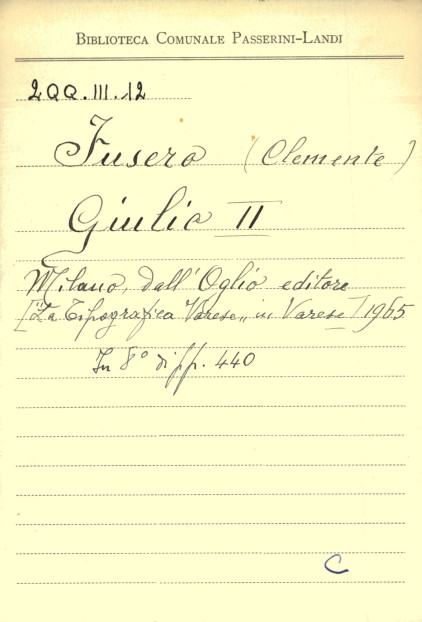 BIBLIOTECA COMUNALE PASSERINI-LANDI
2QQ.III.12
Fusero (Clemente)
Giulio II
Milano, dall'Oglio editore
["La Tipografica Varese„ in Varese] 1965
In 8° di pp. 440
C